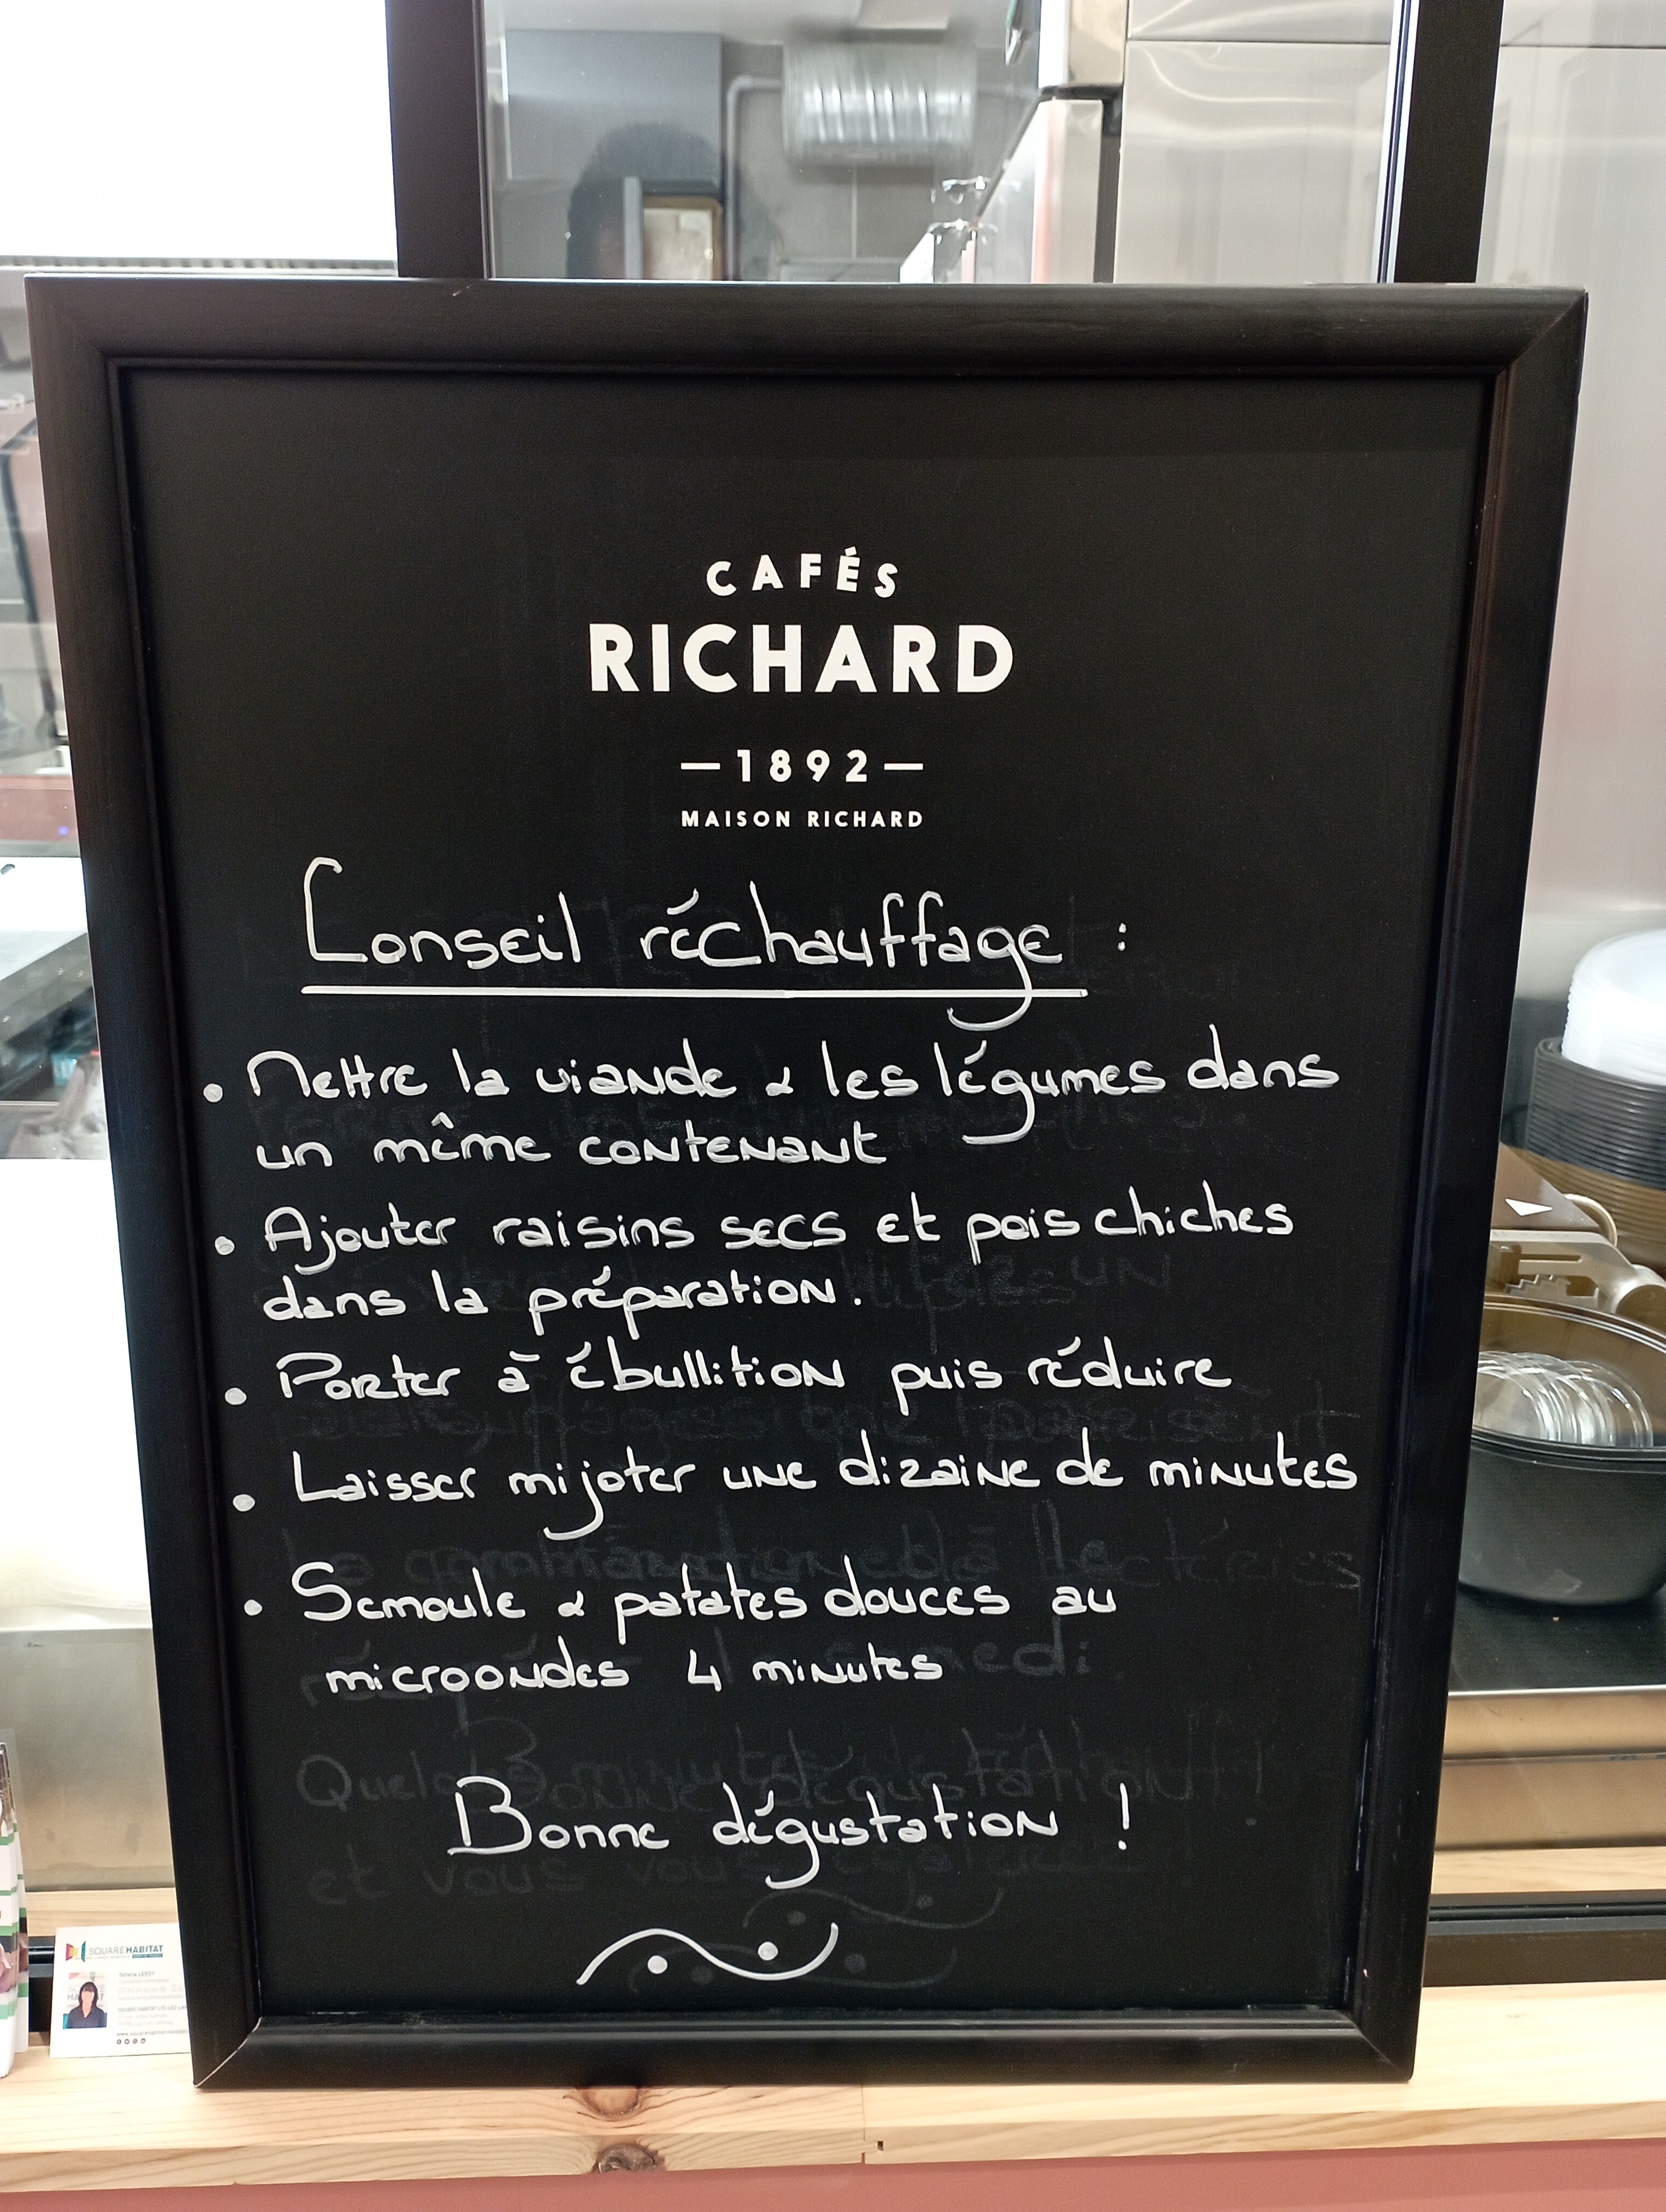 CAFÉS
RICHARD
—1892—
MAISON RICHARD
Conseil réchauffage :
• Mettre la viande & les légumes dans
un même contenant
• Ajouter raisins secs et pois chiches
dans la préparation.
• Porter à ébullition puis réduire
• Laisser mijoter une dizaine de minutes
• Semoule & patates douces au
microondes 4 minutes
Bonne dégustation !
SQUARE HABITAT